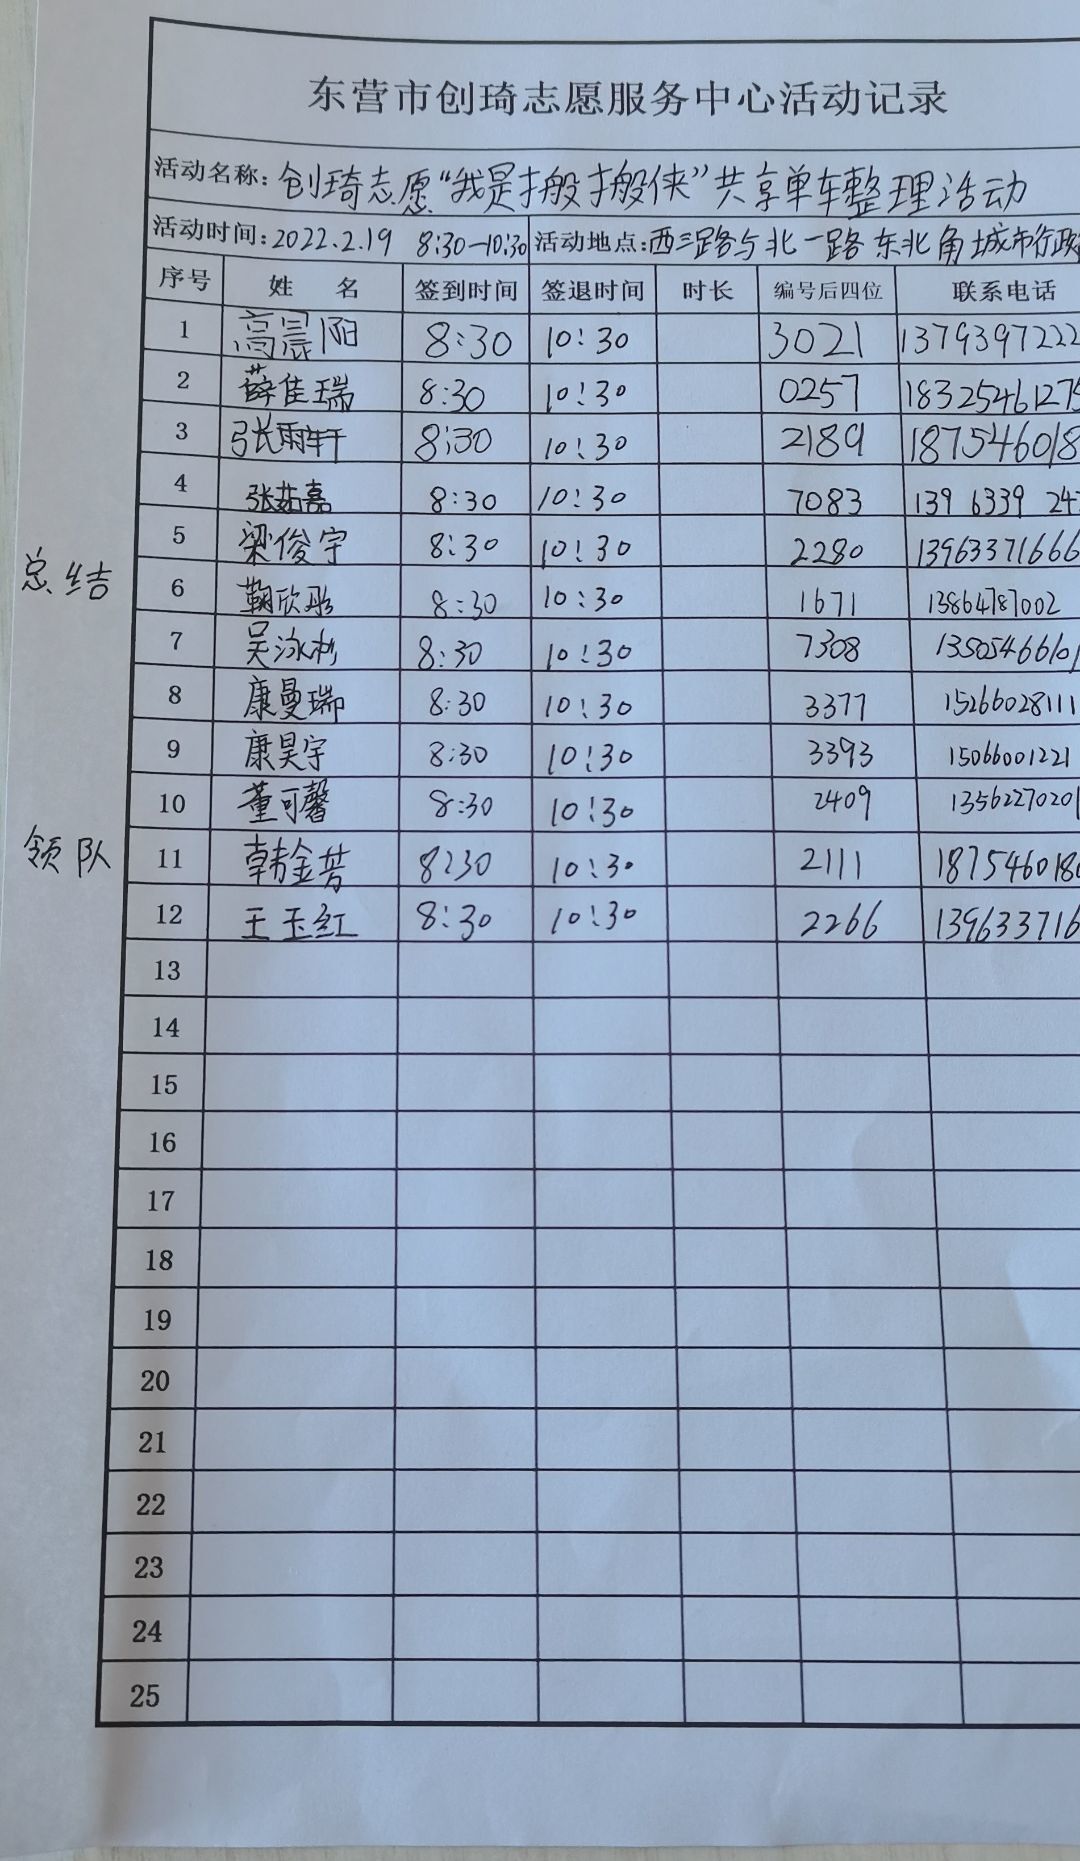 东营市创琦志愿服务中心活动记录
活动名称:创琦志愿“我是搬搬侠”共享单车整理活动
活动时间:2022.2.19 8:30-10:30 活动地点:西三路与北一路东北角城市行政
序号 姓名 签到时间 签退时间 时长 编号后四位 联系电话
1 高晨阳 8:30 10:30 3021 1379397222
2 薛佳瑞 8:30 10:30 0257 18325461275
3 张雨轩 8:30 10:30 2189 187546018
4 张茹嘉 8:30 10:30 7083 139 6339 24
5 梁俊宇 8:30 10:30 2280 13963371666
总结 6 鞠欣彤 8:30 10:30 1671 13864787002
7 吴泳杉 8:30 10:30 7308 1350546610
8 康曼瑞 8:30 10:30 3377 15266028111
9 康昊宇 8:30 10:30 3393 15066001221
10 董可馨 8:30 10:30 2409 13562270201
领队 11 韩金芳 8:30 10:30 2111 1875460180
12 王玉红 8:30 10:30 2266 139633716
13
14
15
16
17
18
19
20
21
22
23
24
25